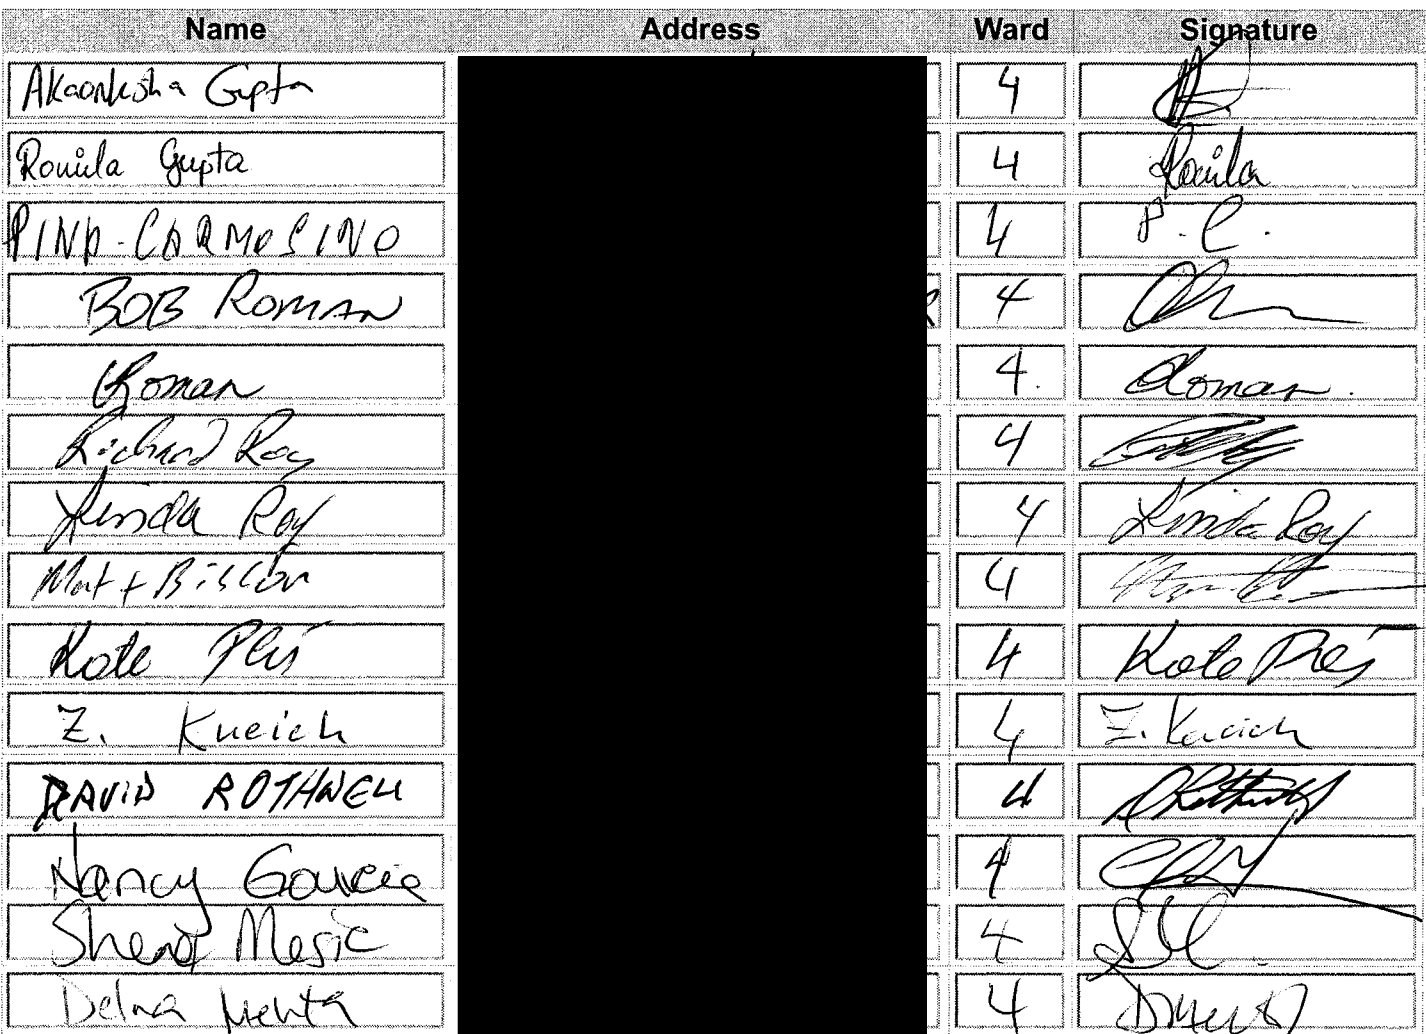 Name Address Ward Signature
Akaanksha Gupta 4
Romila Gupta 4 Romila
PINA CARMOSINO 4 P. C.
BOB ROMAN 4
Roman 4. Roman.
Richard Roy 4
Linda Roy 4 Linda Roy
Matt 4
Kate 4 Kate
Z. Kucich 4 Z. Kucich
DAVID ROTHWELL 4
Nancy 4
Mesic 4
Mehta 4